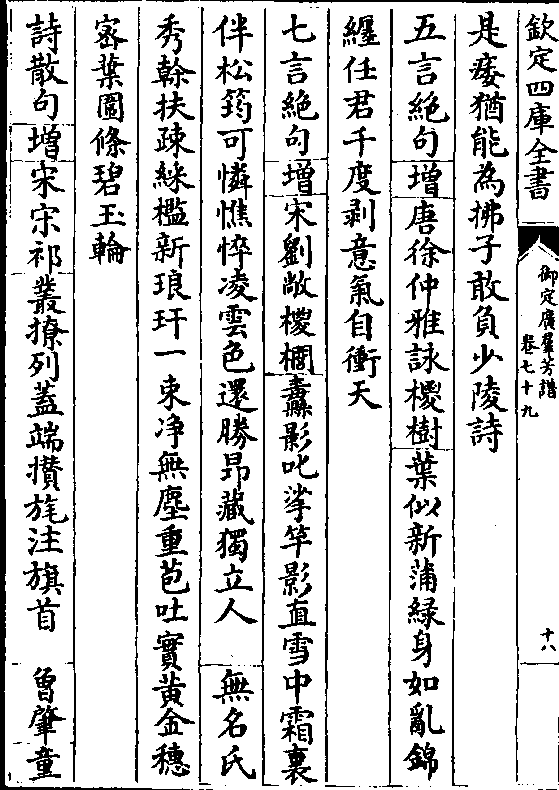 欽定四庫全書
御定廣羣芳譜
卷七十九
十八
是痿猶能為拂子敢負少陵詩
五言絶句增唐徐仲雅詠椶樹葉似新蒲緑身如亂錦
纒任君千度剥意氣自衝天
七言絶句增宋劉敞椶櫚纛影叱挲竿影直雪中霜裏
伴松筠可憐憔悴凌雲色還勝昻藏獨立人　無名氏
秀幹扶疎綵檻新琅玕一束净無塵重苞吐實黄金穗
宻葉圍條碧玉輪
詩散句增宋宋祁叢撩列蓋端攢旄注旗首　曾肇童